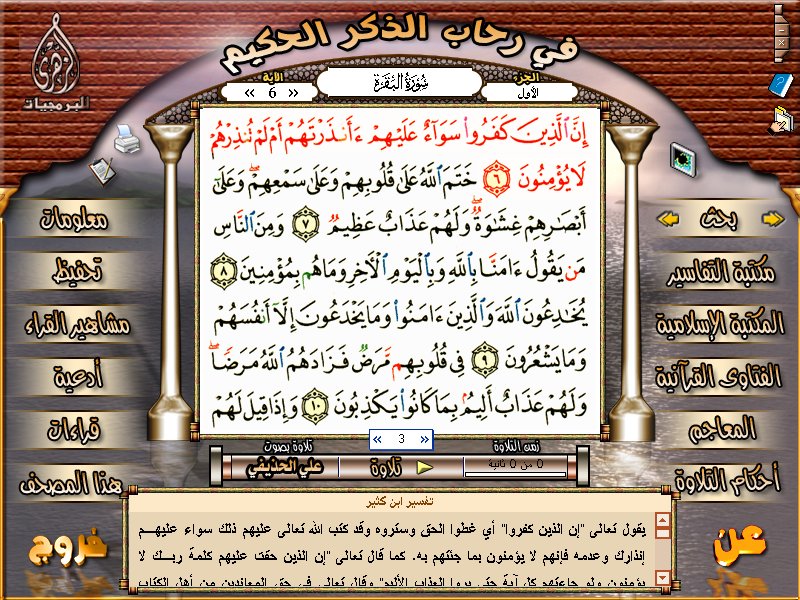 في رحاب الذكر الحكيم
الأزهري
للبرمجيات
الجزء
الأول
سُورَةُ الْبَقَرَةِ
الآية
6
إِنَّ ٱلَّذِينَ كَفَرُوا۟ سَوَآءٌ عَلَيْهِمْ ءَأَنذَرْتَهُمْ أَمْ لَمْ تُنذِرْهُمْ
لَا يُؤْمِنُونَ ٦ خَتَمَ ٱللَّهُ عَلَىٰ قُلُوبِهِمْ وَعَلَىٰ سَمْعِهِمْ ۖ وَعَلَىٰٓ
أَبْصَٰرِهِمْ غِشَٰوَةٌ ۖ وَلَهُمْ عَذَابٌ عَظِيمٌ ٧ وَمِنَ ٱلنَّاسِ
مَن يَقُولُ ءَامَنَّا بِٱللَّهِ وَبِٱلْيَوْمِ ٱلْءَاخِرِ وَمَا هُم بِمُؤْمِنِينَ ٨
يُخَٰدِعُونَ ٱللَّهَ وَٱلَّذِينَ ءَامَنُوا۟ وَمَا يَخْدَعُونَ إِلَّآ أَنفُسَهُمْ
وَمَا يَشْعُرُونَ ٩ فِى قُلُوبِهِم مَّرَضٌ فَزَادَهُمُ ٱللَّهُ مَرَضًا ۖ
وَلَهُمْ عَذَابٌ أَلِيمٌۢ بِمَا كَانُوا۟ يَكْذِبُونَ ١٠ وَإِذَا قِيلَ لَهُمْ
3
بحث
مكتبة التفاسير
المكتبة الإسلامية
الفتاوى القرآنية
المعاجم
أحكام التلاوة
عن
معلومات
تحفيظ
مشاهير القراء
أدعية
قراءات
هذا المصحف
خروج
زمن التلاوة
0 من 0 ثانية
تلاوة
تلاوة بصوت
علي الحذيفي
تفسير ابن كثير
يقول تعالى "إن الذين كفروا" أي غطوا الحق وستروه وقد كتب الله تعالى عليهم ذلك سواء عليهم
إنذارك وعدمه فإنهم لا يؤمنون بما جئتهم به. كما قال تعالى "إن الذين حقت عليهم كلمة ربك لا
يؤمنون ولو جاءتهم كل آية حتى يروا العذاب الأليم" وقال تعالى في حق المعاندين من أهل الكتاب